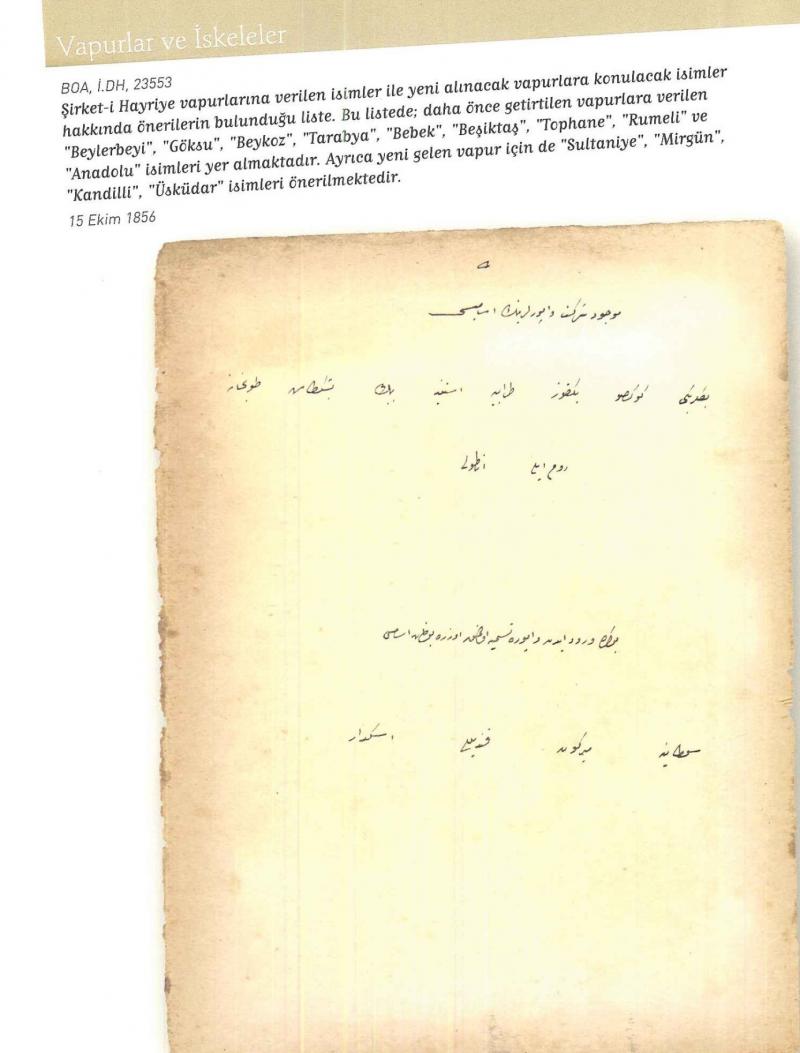 Vapurlar ve İskeleler
BOA, İ.DH, 23553
Şirket-i Hayriye vapurlarına verilen isimler ile yeni alınacak vapurlara konulacak isimler
hakkında önerilerin bulunduğu liste. Bu listede; daha önce getirtilen vapurlara verilen
"Beylerbeyi", "Göksu", "Beykoz", "Tarabya", "Bebek", "Beşiktaş", "Tophane", "Rumeli" ve
"Anadolu" isimleri yer almaktadır. Ayrıca yeni gelen vapur için de "Sultaniye", "Mirgün",
"Kandilli", "Üsküdar" isimleri önerilmektedir.
15 Ekim 1856
موجود شركت واپورلرينك اساميسى
بكلربكى كوكصو بكقوز طرابيه استنيه ببك بشكطاش طوپخانه
روم ايلى اناطولى
ورود ايدن واپوره تسميه اولنمق اوزره اسامى
سلطانيه ميركون قنديللى اسكدار